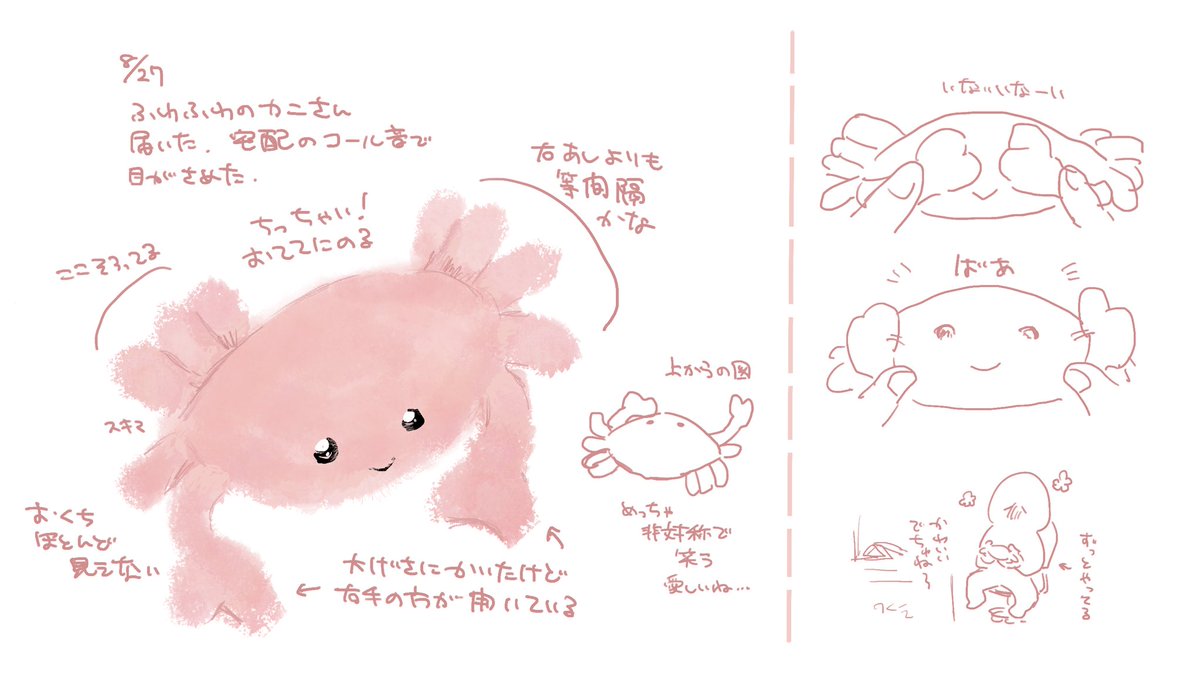 8/27
ふわふわのカニさん
届いた. 宅配のコール音で
目がさめた.
ちっちゃい!
おててにのる
右あしよりも
等間隔
かな
ここそろってる
スキマ
おくち
ほとんど
見えない
大げさにかいたけど
右手の方が開いている
上からの図
めっちゃ
非対称で
笑う
愛しいね...
いないいなーい
ばあ
かわいい
でちゅね〜
ずっとやってる
つくえ